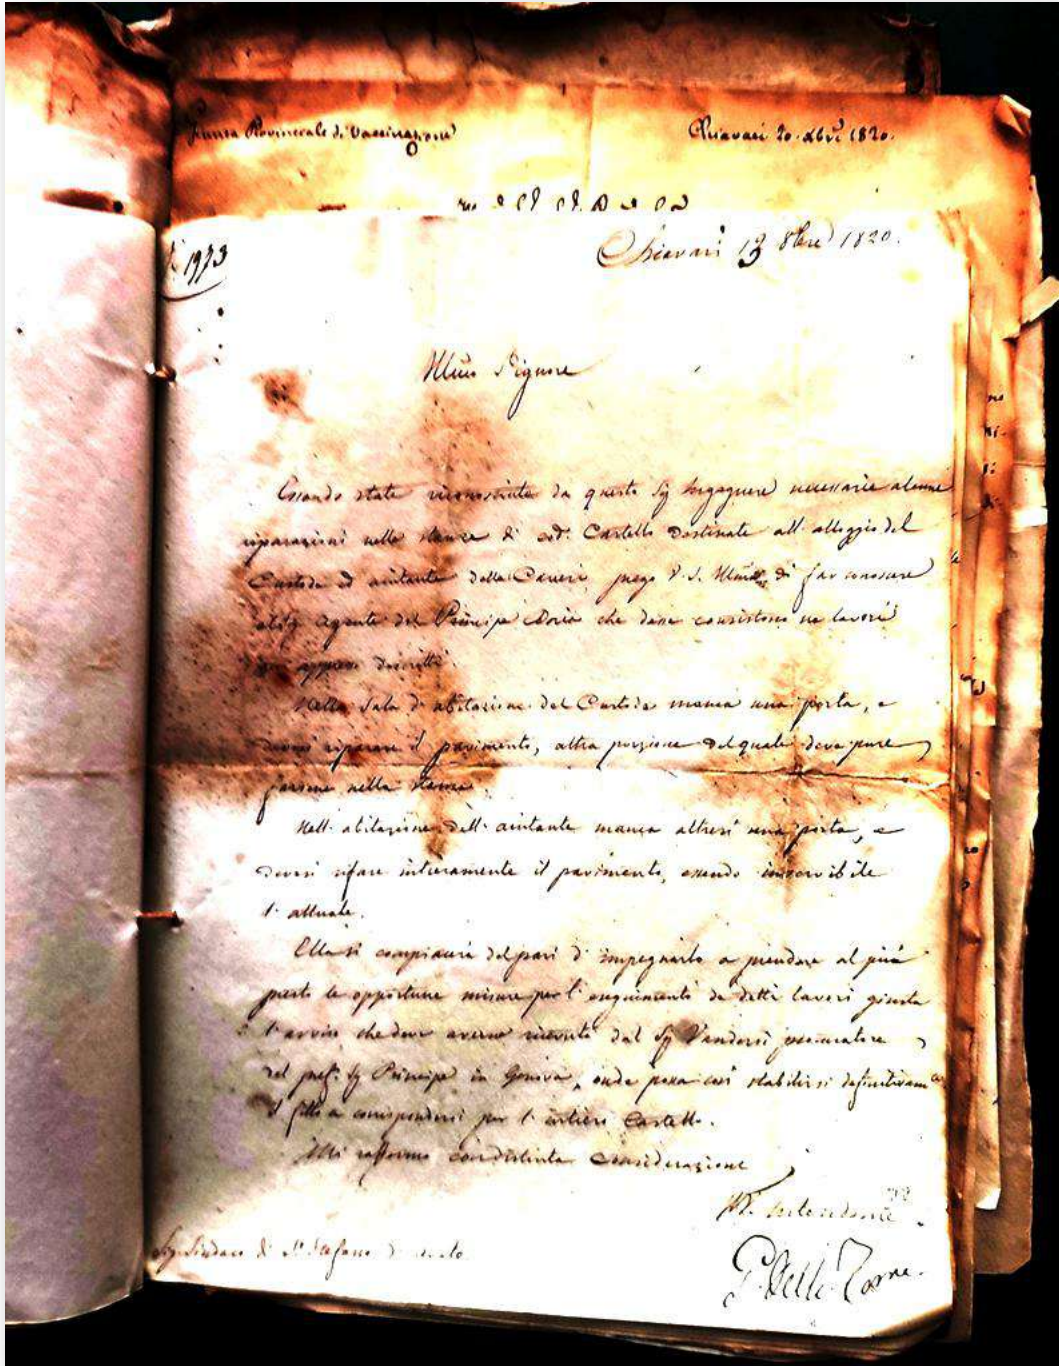 Giunta Provinciale di Vaccinazione
Chiavari 20 Xbre 1820.
N° 1973
Chiavari 13 8bre 1820.
Illmo Signore
Essendo state riconosciute da questo Sig Ingegnere necessarie alcune
riparazioni nelle stanze di cod. Castello destinate all' alloggio del
Custode ed aiutante delle Carceri, prego V. S. Illma di far conoscere
Agente del Principe Doria che desse consistono ne lavori
appresso descritti.
Nella Sala d' abitazione del Custode manca una porta, e
devesi riparare il pavimento, altra porzione del quale deve pure
farsene nella stanza.
Nell' abitazione dell' aiutante manca altresì una porta, e
devesi rifare intieramente il pavimento, essendo inservibile
l' attuale.
Ella si compiacerà del pari d' impegnarlo a prendere al più
presto le opportune misure per l' eseguimento de detti lavori giusta
l' avviso che deve averne ricevuto dal Sig procuratore
del pref. Sig Principe in Genova, onde possa così stabilirsi definitivam.e
il fitto a corrispondersi per l' intiero Castello.
Mi raffermo con distinta considerazione
Intendente
Sig. Sindaco di S. Stefano d'
Della Torre.